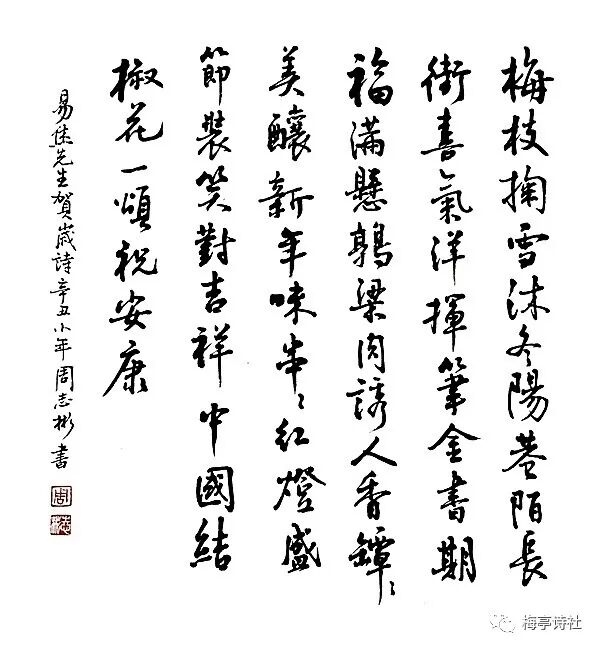 梅枝掬雪沐冬陽巷陌長
街喜氣洋揮筆金書期
福滿懸鶉梁肉誘人香罈々
美釀新年味串々紅燈盛
節裝笑對吉祥中國結
椒花一頌祝安康
易先生賀歲詩辛丑小年周志彬書
周
梅亭诗社